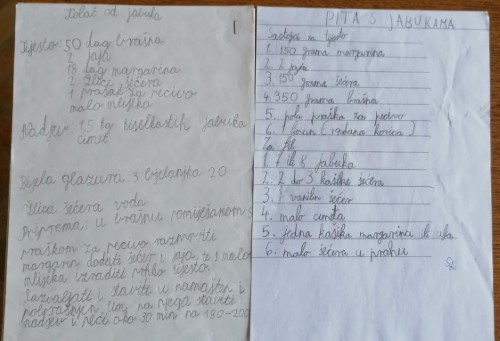 Kolač od jabuka
Tijesto: 50 dag brašna
2 jaja
18 dag margarina
2 žlice šećera
1 prašak za pecivo
malo mlijeka
Nadjev: 1.5 kg kiselkastih jabuka
cimet
Bijela glazura: 3 bjelanjka 20
žlica šećera voda
Priprema: u brašnu pomiješanom s
praškom za pecivo razmrviti
margarin dodati šećer i jaja, te s malo
mlijeka izraditi prhko tijesto.
Razvaljati i staviti u namašten i
pobrašnjen lim, na njega staviti
nadjev i peći oko 30 min na 180-200
PITA S JABUKAMA
Sastojci za tijesto
1. 150 grama margarina
2. 2 jaja
3. 150 grama šećera
4. 350 grama brašna
5. pola praška za pecivo
6. limun (rendana korica)
Za fil
1. 7 ili 8 jabuka
2. 2 do 3 kašike šećera
3. 1 vanilin šećer
4. malo cimeta
5. jedna kašika margarina ili ulja
6. malo šećera u prahu